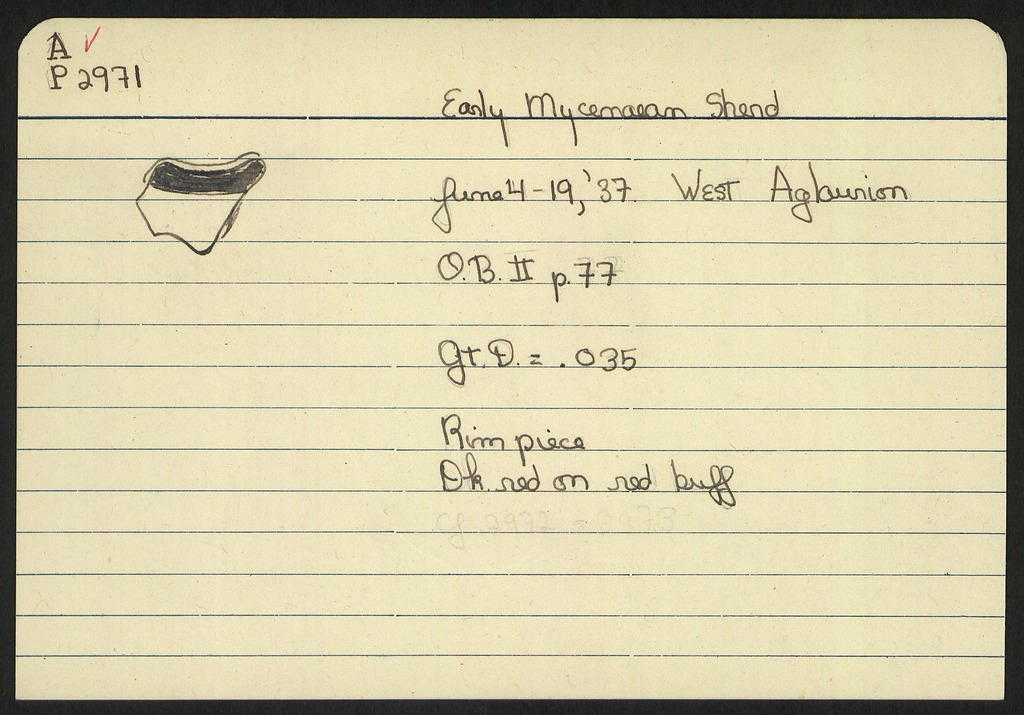 A ✓
P 2971
Early Mycenaean Sherd
June 4-19, '37. West Aglaurion
O.B. II p.77
Gt. D. = .035
Rim piece
Dk. red on red buff
cf 2972 - 2973